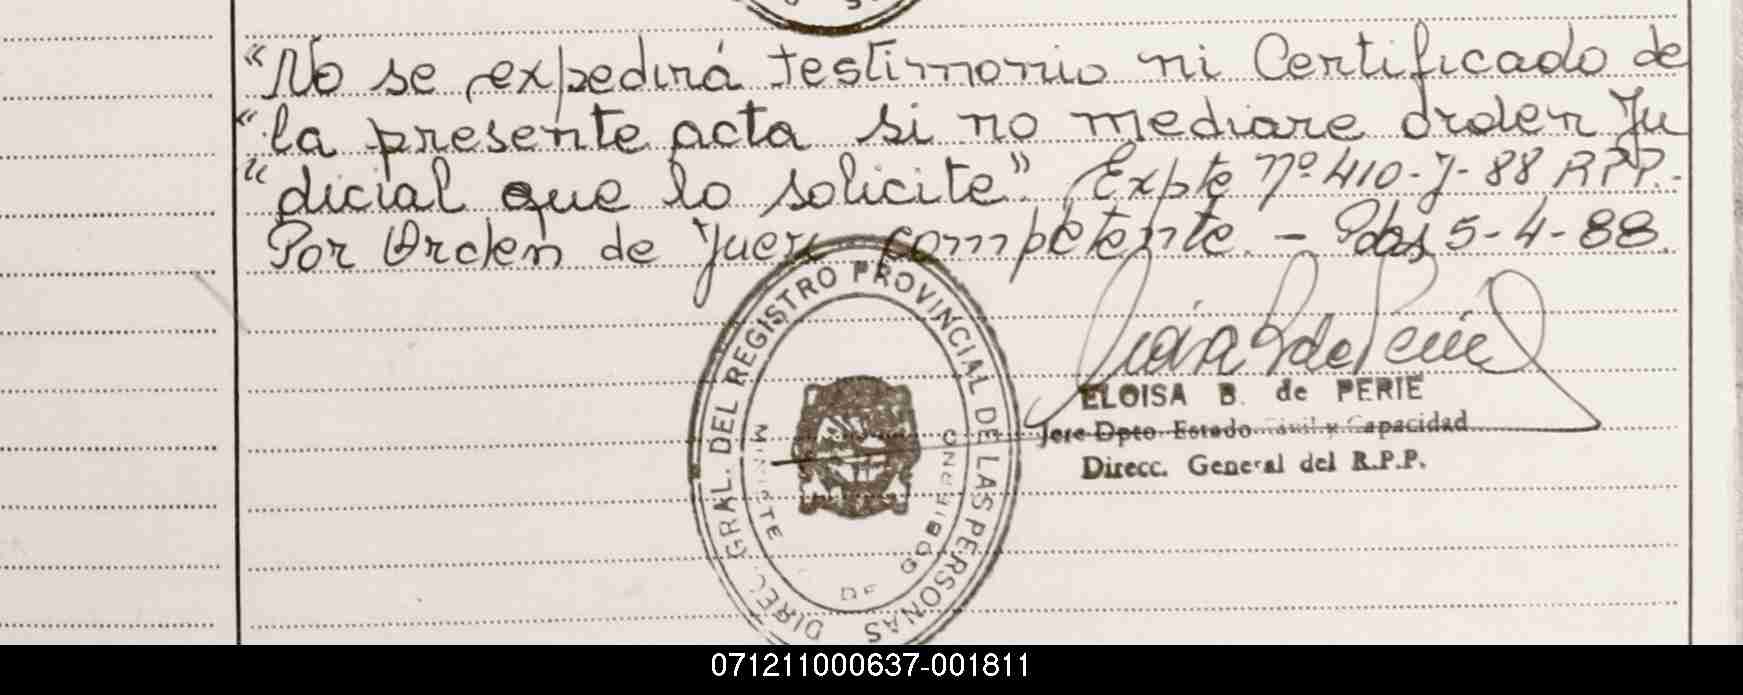 "No se expedirá testimonio ni Certificado de
"la presente acta si no mediare orden Ju
"dicial que lo solicite". Expte Nº 410-J-88 RPP.-
Por Orden de Juez competente. - Pdas 5-4-88.
DIREC. GRAL. DEL REGISTRO PROVINCIAL DE LAS PERSONAS
MINISTE
DE
GOBIERNO
ELOISA B. de PERIE
Jefe Dpto Estado Civil y Capacidad
Direcc. General del R.P.P.
071211000637-001811